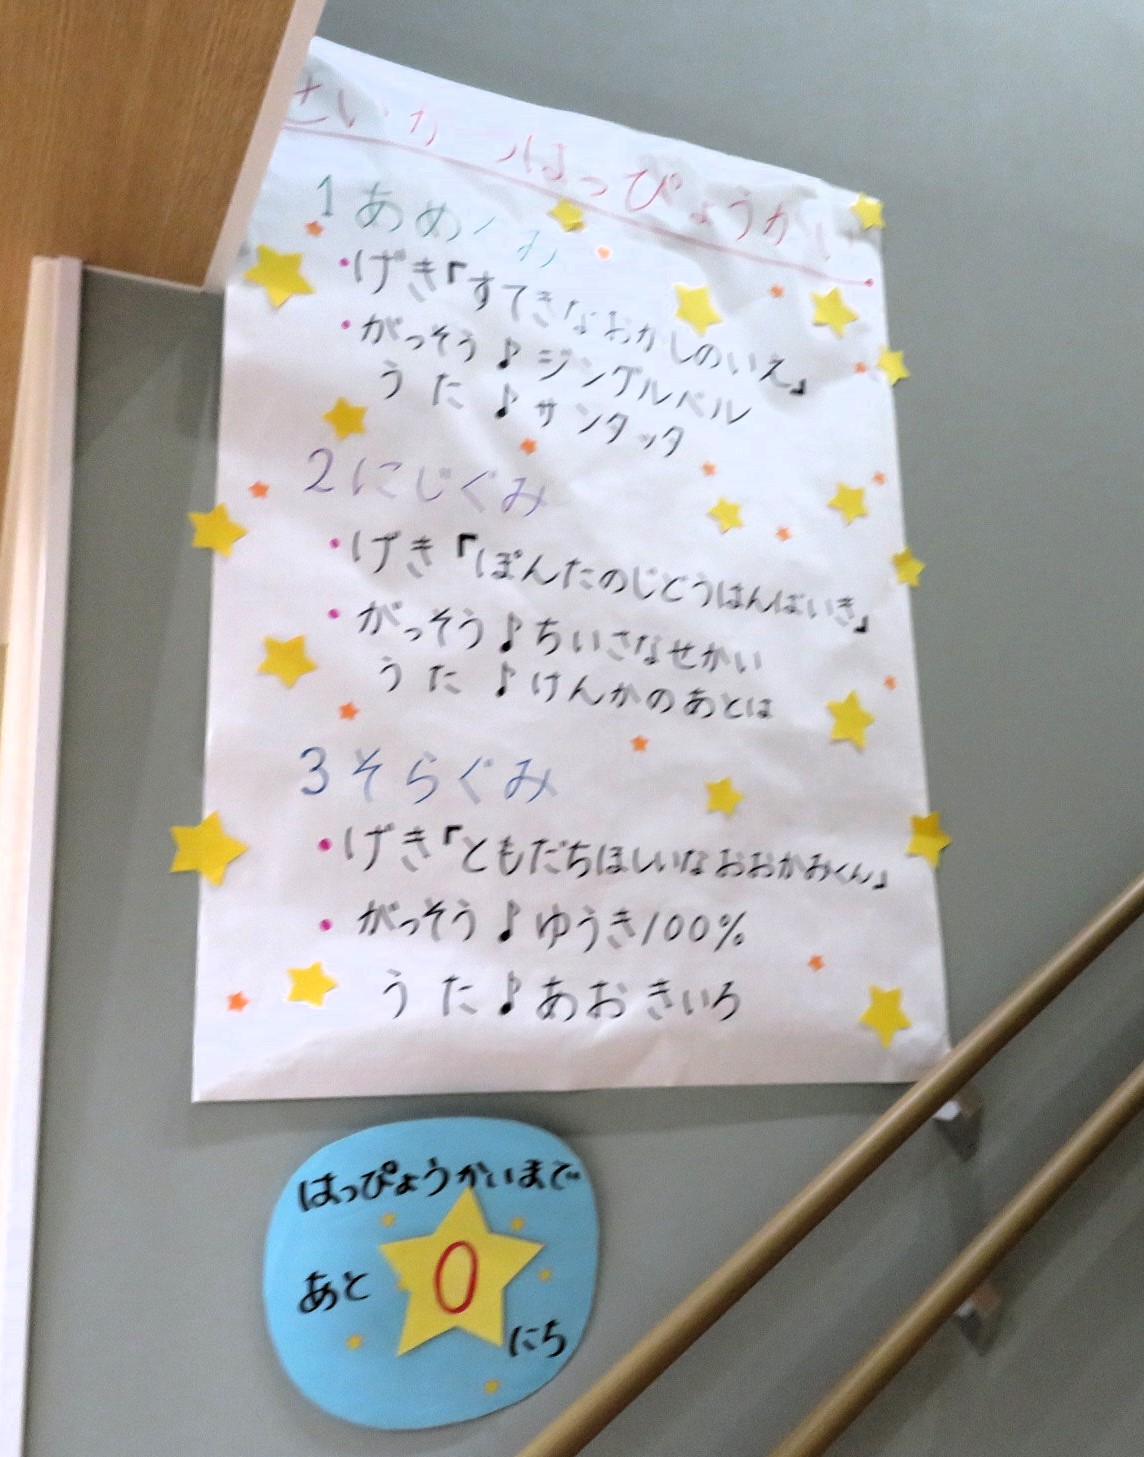 せいかつはっぴょうかい
1 あめぐみ
・げき「すてきなおかしのいえ」
・がっそう♪ジングルベル
うた♪サンタッタ
2 にじぐみ
・げき「ぽんたのじどうはんばいき」
・がっそう♪ちいさなせかい
うた♪けんかのあとは
3 そらぐみ
・げき「ともだちほしいなおおかみくん」
・がっそう♪ゆうき100%
うた♪あおきいろ
はっぴょうかいまで
あと 0 にち